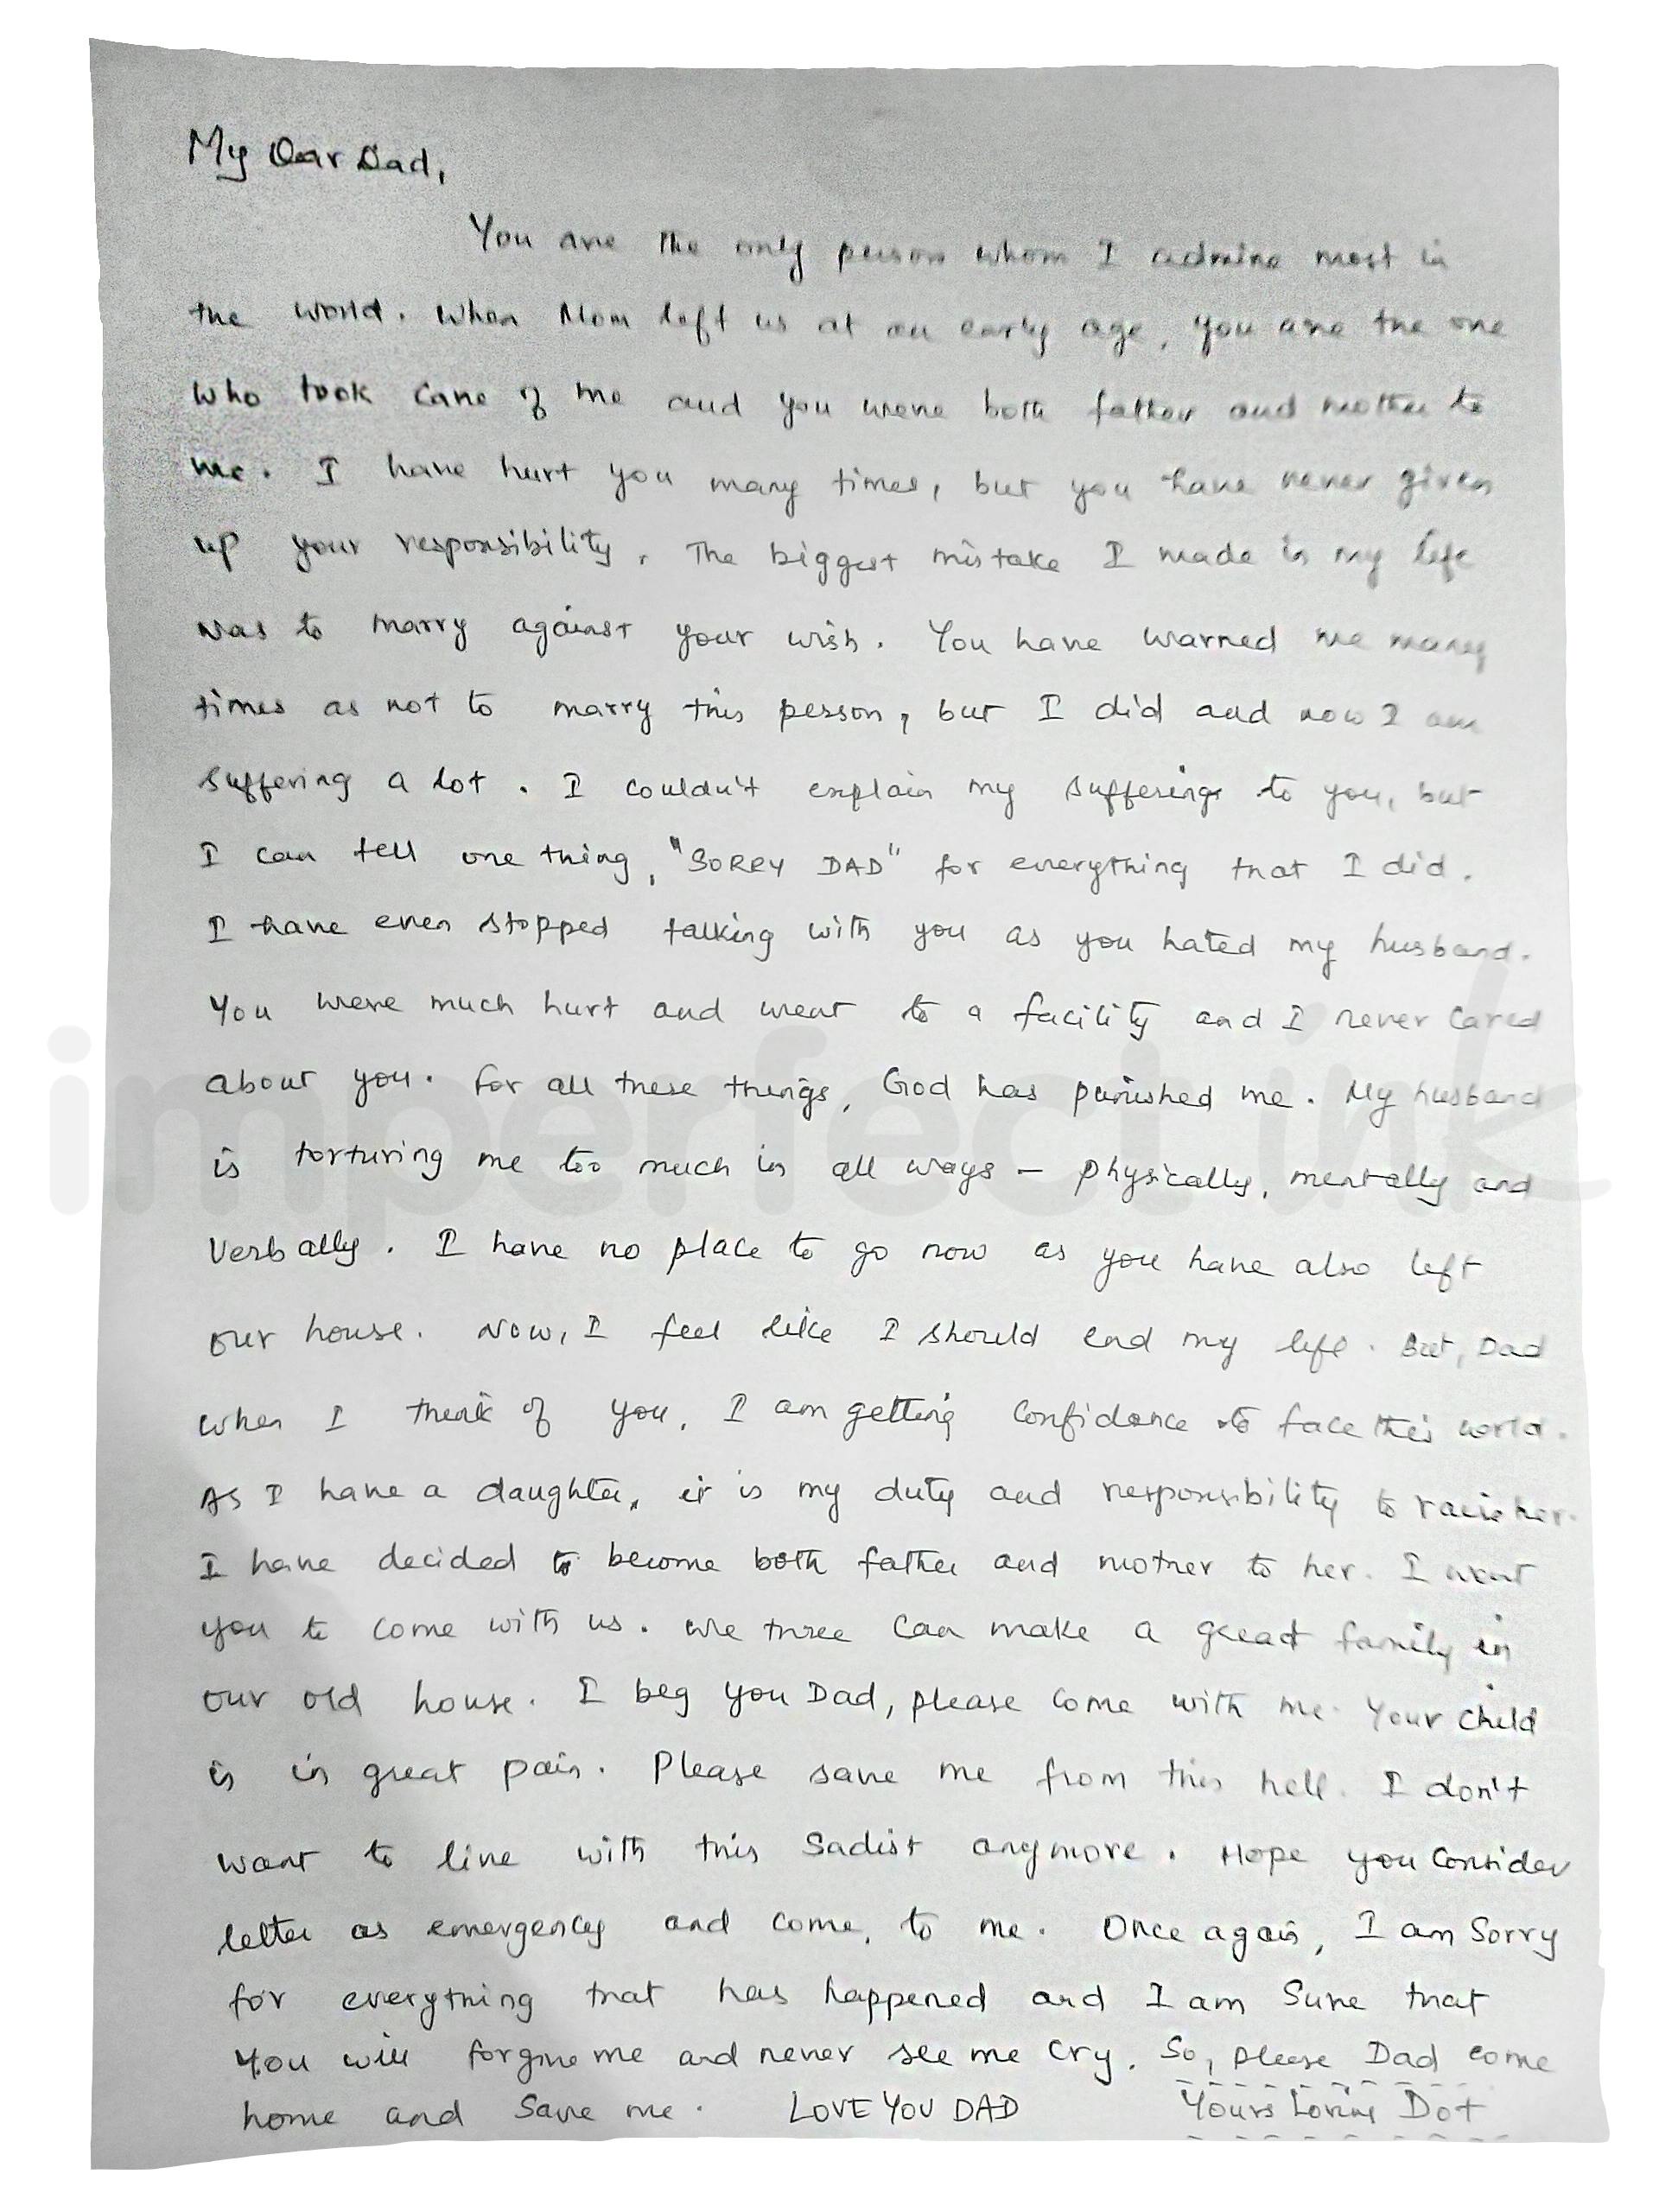 My Dear Dad,
You are the only person whom I admire most in
the world. When Mom left us at an early age, you are the one
who took care of me and you were both father and mother to
me. I have hurt you many times, but you have never given
up your responsibility. The biggest mistake I made in my life
was to marry against your wish. You have warned me many
times as not to marry this person, but I did and now I am
suffering a lot. I couldn't explain my sufferings to you, but
I can tell one thing, "SORRY DAD" for everything that I did.
I have even stopped talking with you as you hated my husband.
You were much hurt and went to a facility and I never cared
about you. For all these things, God has punished me. My husband
is torturing me too much in all ways – physically, mentally and
Verbally. I have no place to go now as you have also left
our house. Now, I feel like I should end my life. But, Dad
when I think of you, I am getting confidence to face this world.
As I have a daughter, it is my duty and responsibility to raise her.
I have decided to become both father and mother to her. I want
you to come with us. We three can make a great family in
our old house. I beg you Dad, please come with me. Your child
is in great pain. Please save me from this hell. I don't
want to live with this Sadist anymore. Hope you consider
letter as emergency and come, to me. Once again, I am Sorry
for everything that has happened and I am Sure that
You will forgive me and never see me cry. So, please Dad come
home and Save me. LOVE YOU DAD Yours Loving Dot
imperfect ink